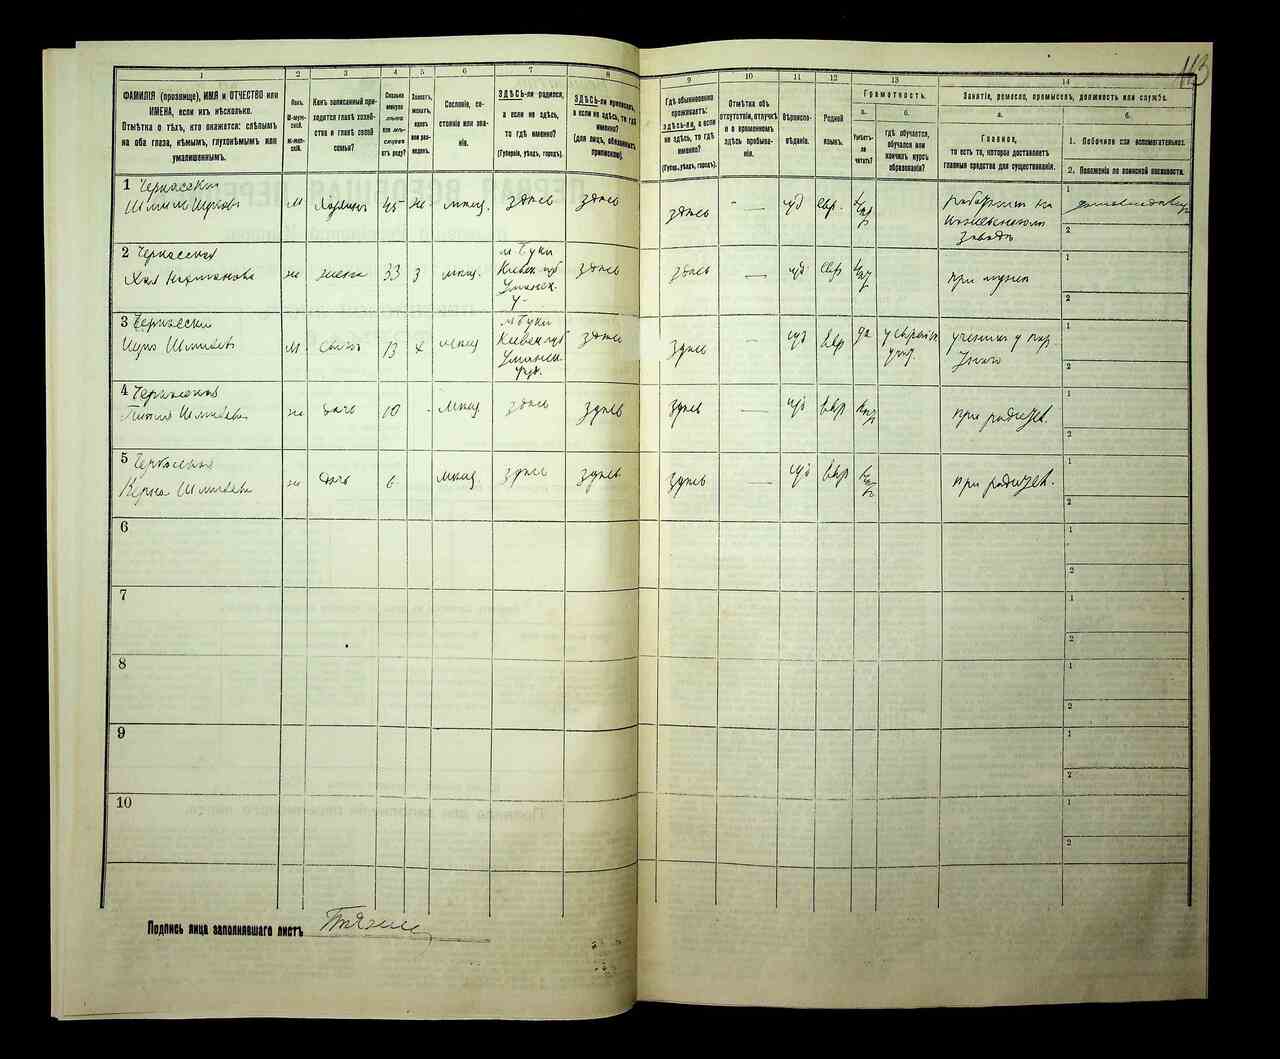 113
1
2
3
4
5
6
7
8
9
10
11
12
13
14
ФАМИЛІЯ (прозвище), ИМЯ и ОТЧЕСТВО или
ИМЕНА, если ихъ нѣсколько.
Отмѣтка о тѣхъ, кто окажется: слѣпымъ
на оба глаза, нѣмымъ, глухонѣмымъ или
умалишеннымъ.
Полъ.
М-муж-
ской.
Ж-жен-
скій.
Какъ записанный при-
ходится главѣ хозяй-
ства и главѣ своей
семьи?
Сколько
минуло
лѣтъ
или мѣ-
сяцевъ
отъ роду?
Холостъ,
женатъ,
вдовъ
или раз-
веденъ.
Сословіе, со-
стояніе или зва-
ніе.
ЗДѢСЬ-ли родился,
а если не здѣсь,
то гдѣ именно?
(Губернія, уѣздъ, городъ).
ЗДѢСЬ-ли приписанъ,
а если не здѣсь, то гдѣ
именно?
(для лицъ, обязанныхъ
припискою).
Гдѣ обыкновенно
проживаетъ:
здѣсь-ли, а если
не здѣсь, то гдѣ
именно?
(Губер., уѣздъ, городъ).
Отмѣтка объ
отсутствіи, отлучкѣ
и о временномъ
здѣсь пребыва-
ніи.
Вѣроиспо-
вѣданіе.
Родной
языкъ.
Грамотность.
а.
Умѣетъ-
ли
читать?
б.
гдѣ обучается,
обучался или
кончилъ курсъ
образованія?
Занятіе, ремесло, промыселъ, должность или служба.
а.
Главное,
то есть то, которое доставляетъ
главныя средства для существованія.
б.
1. Побочное или вспомогательное.
2. Положеніе по воинской повинности.
1 Черкасскій
М хозяинъ 45 же мѣщ. здѣсь здѣсь здѣсь — іуд евр. заводѣ
1
2
2 Черкасская
Хая Нахманова же жена 33 з мѣщ. м Буки Кіевск. губ Уманск. у. здѣсь здѣсь — іуд евр при мужѣ
1
2
3 Черкасскій
М. сынъ 13 х мѣщ м Буки Кіевск губ Уманск. здѣсь здѣсь іуд евр да
1
2
4 Черкасская
же дочь 10 - мѣщ. здѣсь здѣсь здѣсь — іуд евр при родител.
1
2
5 Черкасская
же дочь 6 мѣщ. здѣсь здѣсь здѣсь — іуд евр при родител.
1
2
6
1
2
7
1
2
8
1
2
9
1
2
10
1
2
Подпись лица заполнявшаго листъ